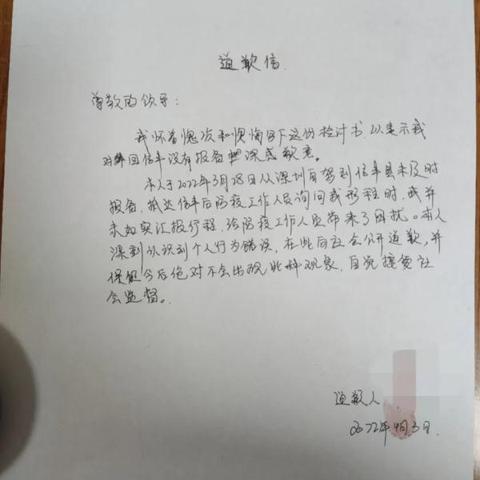 道歉信
尊敬的领导:
我怀着愧疚和懊悔写下这份检讨书,以表示我
对回信丰没有报备深感歉意。
本人于2022年3月28日从深圳自驾到信丰县未及时
报备,抵达信丰后防疫工作人员询问我形程时,我并
未如实汇报行程,给防疫工作人员带来了困扰。本人
深刻认识到个人行为错误,在此向社会公开道歉,并
保证今后绝对不会出现此种现象,自觉接受社
会监督。
道歉人
2022年4月3日.